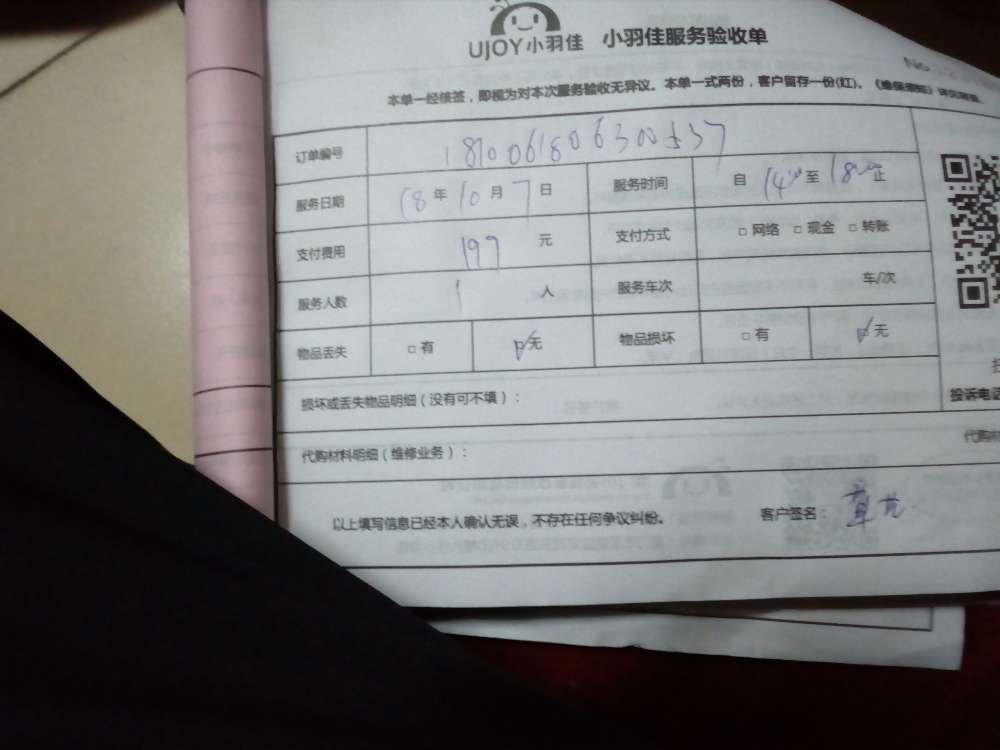 UJOY小羽佳 小羽佳服务验收单
No
本单一经核签，即视为对本次服务验收无异议。本单一式两份，客户留存一份(红)。《维保须知》详见背面。
订单编号 181006180630
服务日期 18年10月7日 服务时间 自14:00至18:00止
支付费用 197元 支付方式 □网络 □现金 □转账
服务人数 1人 服务车次 车/次
物品丢失 □有 ☑无 物品损坏 □有 ☑无
损坏或丢失物品明细（没有可不填）：
投诉电话
代购材料明细（维修业务）：
代购材
以上填写信息已经本人确认无误，不存在任何争议纠纷。 客户签名：